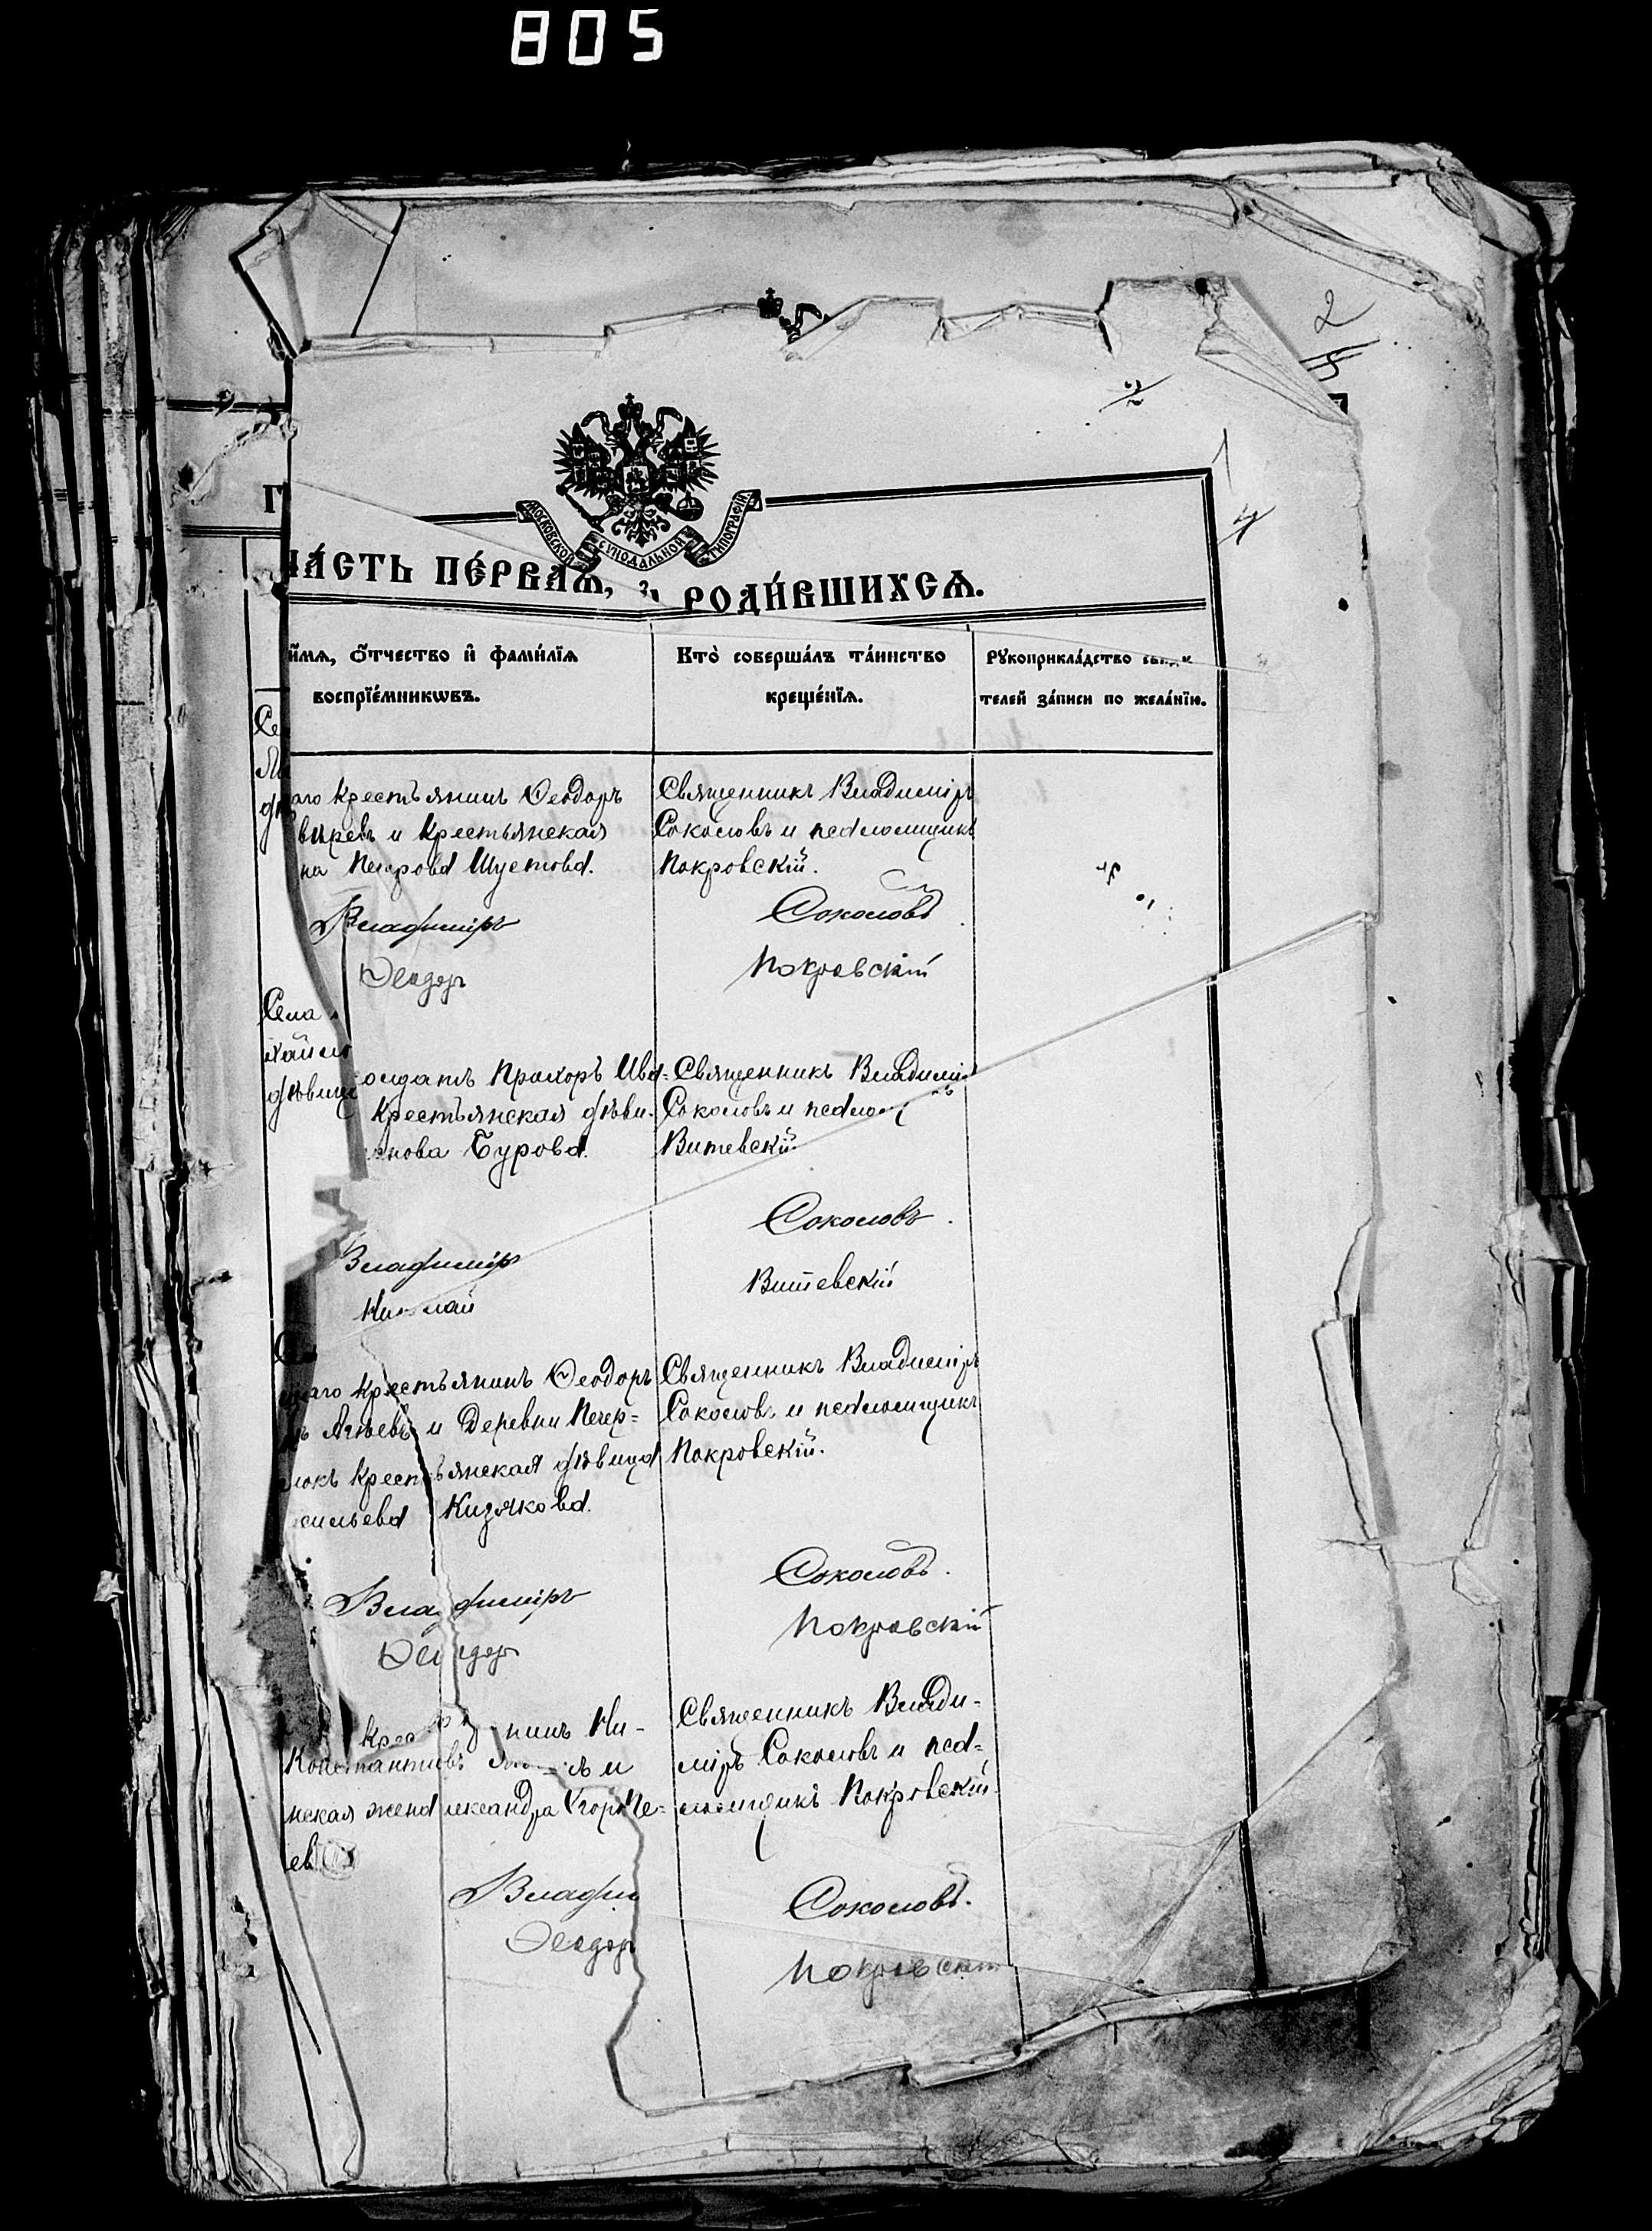 805
2
4
МОСКОВСКОЙ СУНОДАЛЬНОЙ ТИПОГРАФІИ
ЧА́СТЬ ПЕ́РВАѦ, РОДИ́ВШИХСѦ.
И҆́МѦ, Ѻ҆́ТЧЕСТВО И҆ ФАМИ́ЛЇѦ
ВОСПРЇЕ́МНИКѠВЪ.
КТО̀ СОВЕРША́ЛЪ ТА́ИНСТВО
КРЕЩЕ́НЇѦ.
РꙊКОПРИКЛА́ДСТВО
ТЕЛЕЙ ЗА́ПИСИ ПО ЖЕЛА́НЇЮ.
аго крестьянинъ Ѳеодоръ
и крестьянская
на Петрова Шустова.
Владиміръ
Ѳеодоръ
Священникъ Владиміръ
Соколовъ и псаломщикъ
Покровскій.
Соколовъ
Покровскій
Села
дѣвица
олдатъ Прохоръ Ива=
крестьянская дѣви-
нова Бурова.
Владиміръ
Николай
Священникъ Владимі
Соколовъ и псалом
Витевскій
Соколовъ.
Витевскій
крестьянинъ Ѳеодоръ
и деревни Печер=
крестьянская дѣвица
сильева Кизякова.
Владиміръ
Ѳеодоръ
Священникъ Владиміръ
Соколовъ и псаломщикъ
Покровскій.
Соколовъ.
Покровскій
Крес нинъ Ни-
Константинов и
нская жена лександра Егор
ев
Владим
Ѳеодор
Священникъ Влади-
міръ Соколовъ и псал=
ломщикъ Покровскій.
Соколовъ.
Покровскій